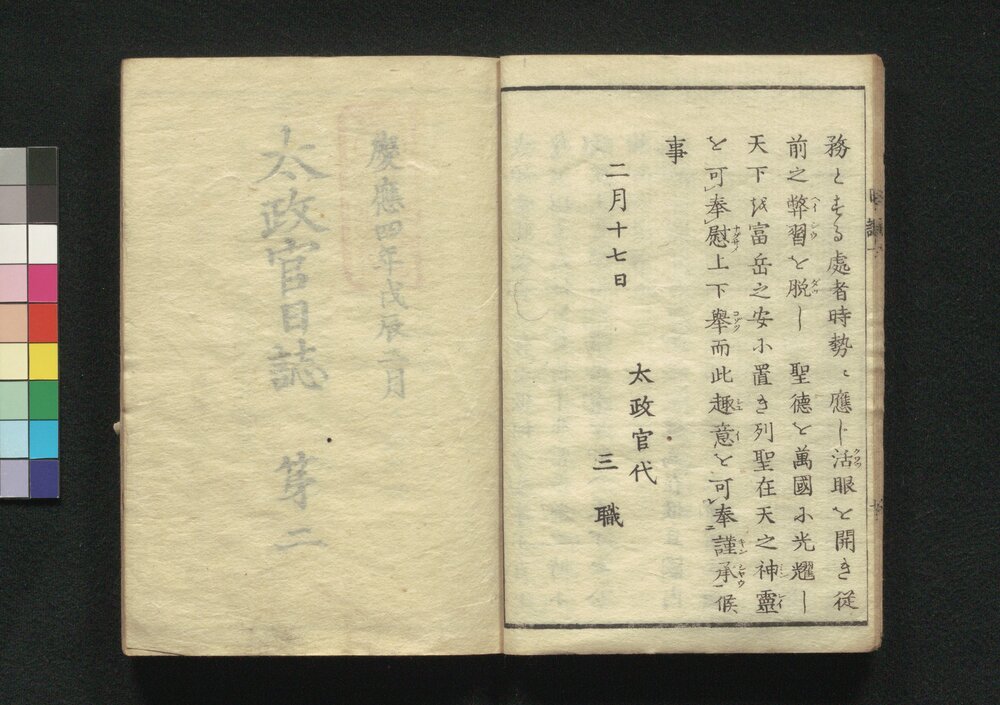 務とする處者時勢ニ應じ活眼を開き従
前之弊習を脱し　聖德を萬國に光耀し
天下を富岳之安に置き列聖在天之神靈
を可奉慰上下擧而此趣意を可奉謹承候
事
二月十七日
太政官代
三職
慶應四年戊辰二月
太政官日誌　第二